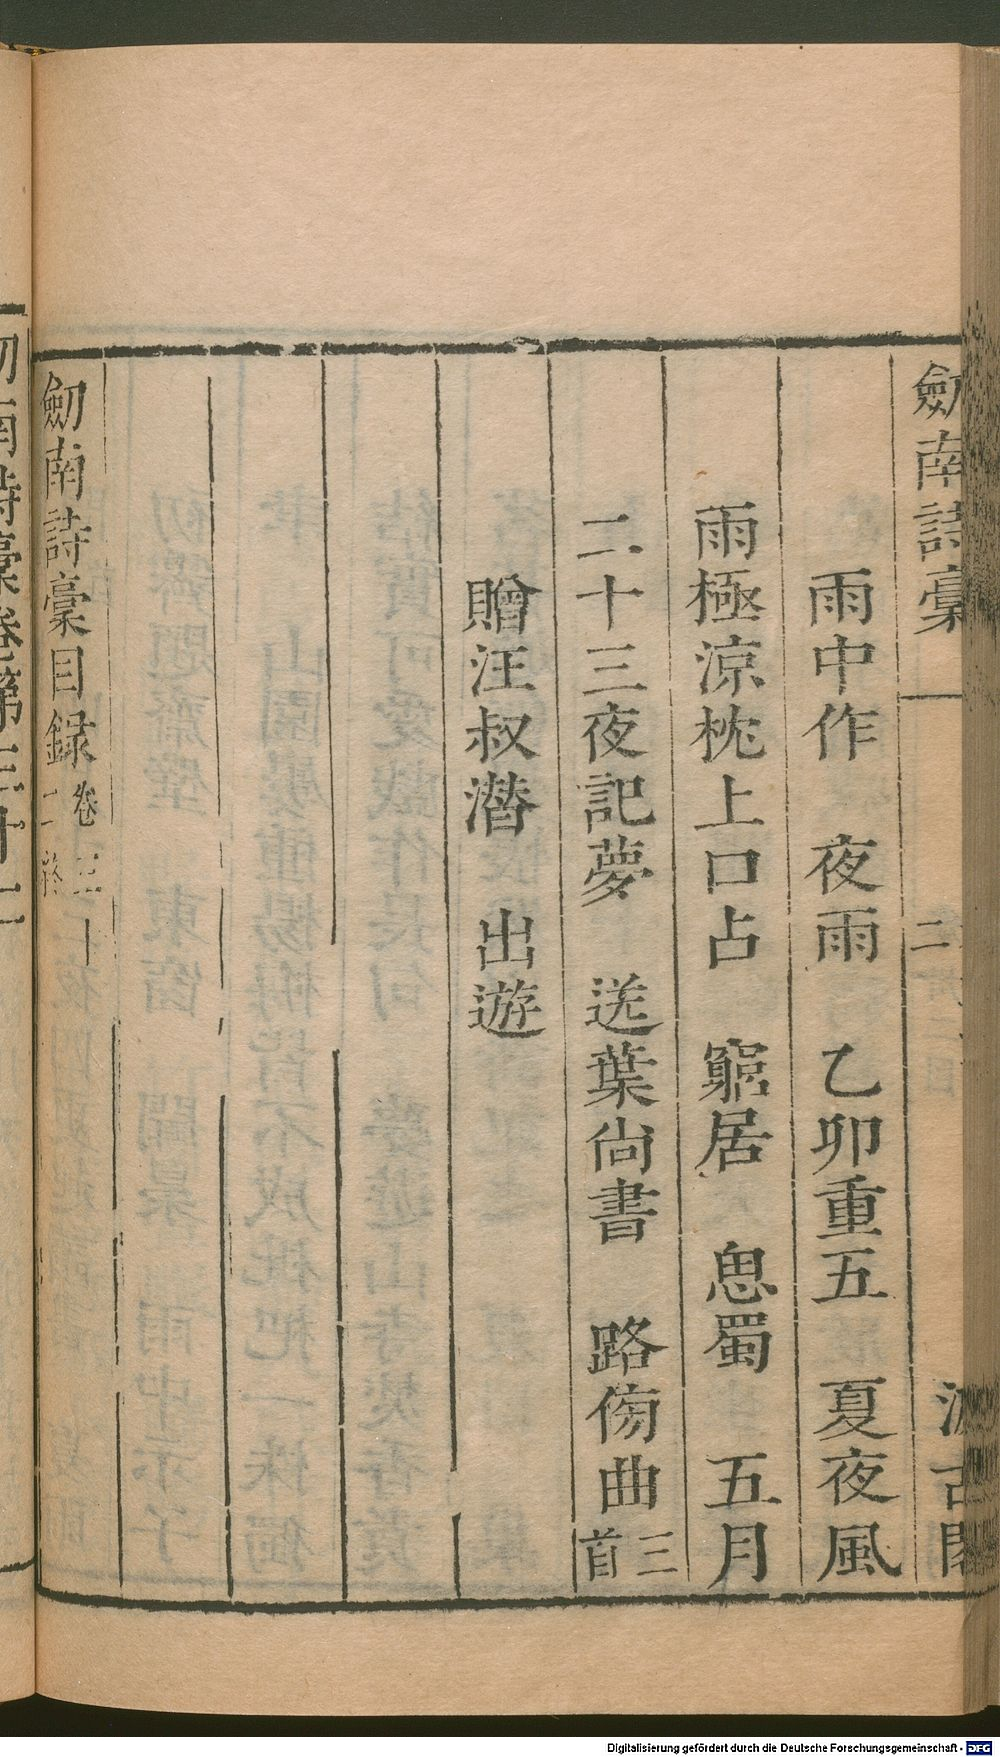 劒南詩稾
二
汲古閣
雨中作　夜雨　乙卯重五　夏夜風
雨極涼枕上口占　窮居　思蜀　五月
二十三夜記夢　送葉尚書　路傍曲三首
贈汪叔潛　出遊
劒南詩稾目録卷三十二終
劒南詩稾卷第三十二
Digitalisierung gefördert durch die Deutsche Forschungsgemeinschaft - DFG